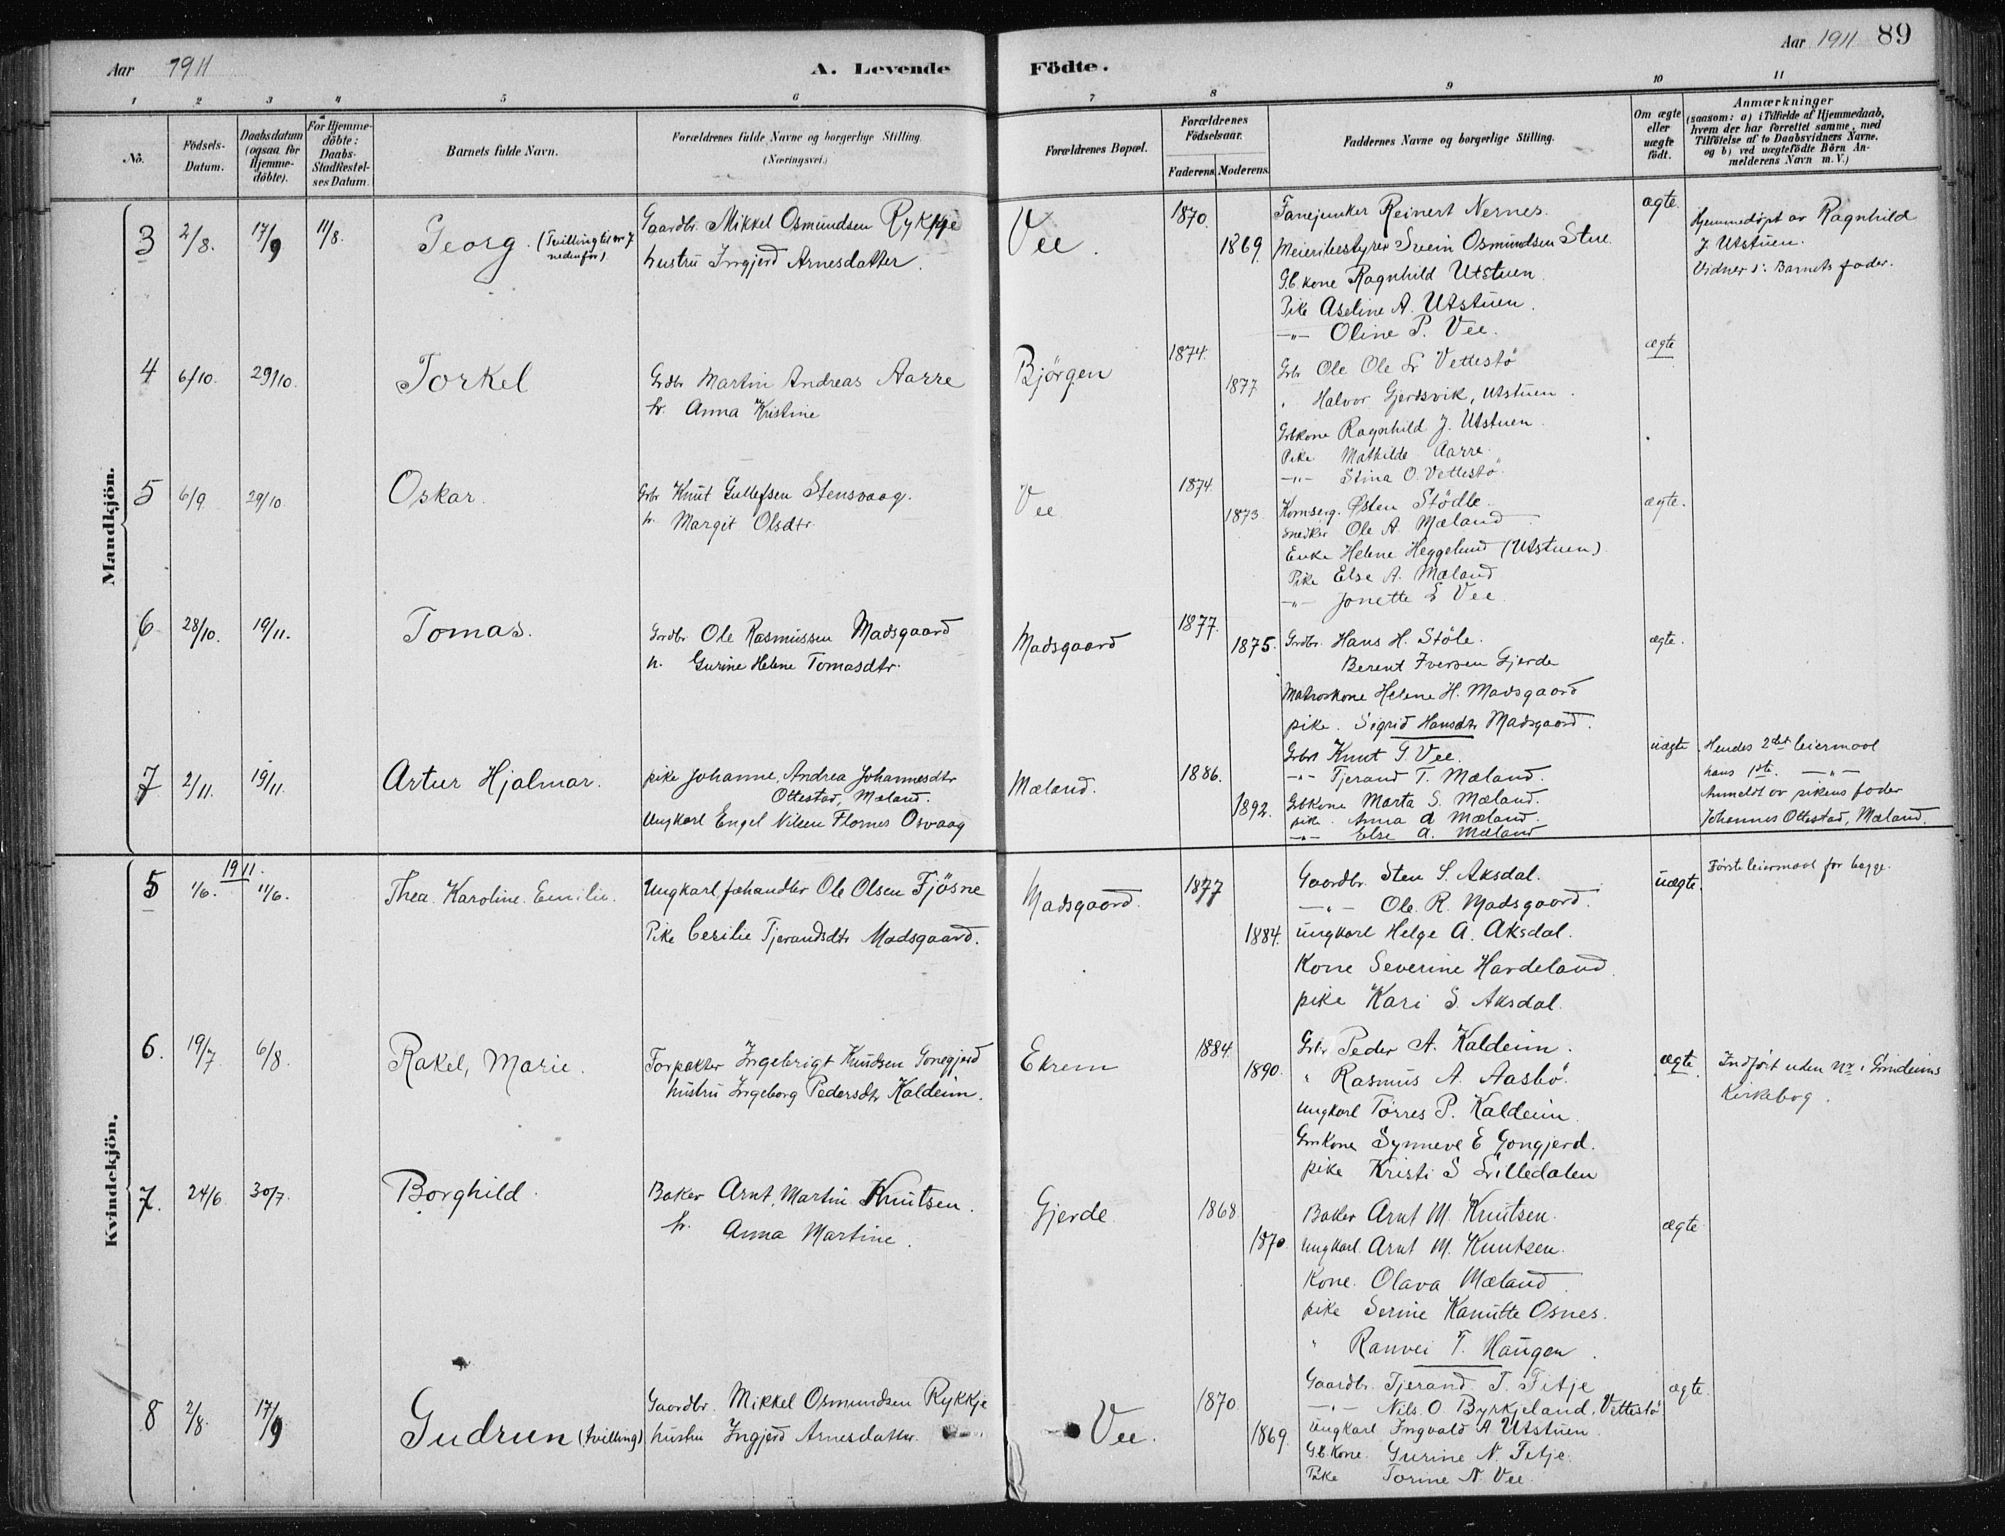 Aar 1911
A. Levende Födte.
Aar 1911 89
1 2 3 4 5 6 7 8 9 10 11
No.
Födsels-Datum.
Daabsdatum (ogsaa for Hjemme-döbte).
For Hjemme-döbte: Daabs-Stadfæstel-ses Datum.
Barnets fulde Navn.
Forældrenes fulde Navne og borgerlige Stilling. (Næringsvei.)
Forældrenes Bopæl.
Forældrenes Födselsaar.
Faderens. Moderens.
Faddernes Navne og borgerlige Stilling.
Om ægte eller uægte födt.
Anmærkninger (saasom: a) i Tilfælde af Hjemmedaab, hvem der har forrettet samme, med Tilföielse af to Daabsvidners Navne. og b) ved uægtefödte Börn An-melderens Navn m. V.)
Mandkjön.
3 2/8. 17/9 11/8. Georg. (Tvilling til nr 7 nedenfor)
Gaardbr. Mikkel Osmundsen Rykkje
hustru Ingjerd Arnesdatter.
Vee. 1870. 1869.
Fanejunker Reinert Nernes.
Meieribestyrer Svein Osmundsen Stue
G.b.kone Ragnhild Utstuen.
Pike Aseline A. Utstuen.
-"- Oline P. Vee.
ægte.
Hjemmedøpt av Ragnhild
J Utstuen.
Vidner: Barnets fader.
4 6/10. 29/10. Torkel
Grdbr Martin Andreas Aarre
h. Anna Kristine
Bjørgen 1874. 1877
Grbr Ole Ole Vettestø
" Halvor Gjerdsvik, Utstuen.
Grbkone Ragnhild J. Utstuen.
Pike Mathilde Aarre.
-"- Stina O. Vettestø
ægte
5 6/9 29/10 Oskar.
Grbr Knut Gullefsen Stensvaag.
h. Margit Olsdtr.
Vee 1874. 1873.
Østen Stødle.
Snedker Ole A Mæland
Enke Helene Heggelund (Utstuen)
Pike Else A. Mæland
-"- Jonette Vee.
ægte.
6 28/10. 19/11. Tomas.
Grdbr Ole Rasmussen Madsgaard
h. Gurine Helene Tomasdtr.
Madsgaard 1877. 1875.
Grdbr. Hans H. Støle.
Berent Iversen Gjerde
Matroskone Helene H. Madsgaard
pike. Sigrid Hansdtr Madsgaard.
ægte.
7 2/11. 19/11. Artur Hjalmar.
pike Johanne, Andrea Johannesdtr
Ottestad, Mæland.
Ungkarl Engel Nilsen Flornes Osvaag
Mæland. 1886. 1892.
Grbr Knut G. Vee.
-"- Tjerand T. Mæland.
Grbkone Marta S. Mæland.
pike. Anna A Mæland.
-"- Else A. Mæland
uægte
Hendes 2det leiermaal
hans 1ste. -"-
Anmeldt av pikens fader
Johannes Ottestad, Mæland.
Kvindekjön.
1911
5 1/6. 11/6. Thea. Karoline. Emilie.
Ungkarl, fæhandler Ole Olsen Fjøsne
Pike Cecilie Tjerandsdtr Madsgaard.
Madsgaard. 1877 1884.
Gaardbr. Sten S. Aksdal.
-"- Ole. R. Madsgaard.
ungkarl Helge A. Aksdal.
Kone Severine Hardeland.
pike Kari S. Aksdal.
uægte.
Første leiermaal for begge.
6. 19/7 6/8 Rakel, Marie.
Forpakter Ingebrigt Knudsen Gonegjerd
hustru Ingeborg Pedersdtr Kaldeim.
Ekrem 1884. 1890.
Grbr Peder A. Kaldeim.
" Rasmus A. Aasbø.
Ungkarl Tørres P. Kaldeim.
Synneve E Gongjerd.
pike Kristi S Lilledalen
ægte
Indført uden nr i Grindeims
Kirkebog.
7. 24/6 30/7. Borghild.
Baker Arnt, Martin Knutsen.
h. Anna Martine.
Gjerde 1868 1870.
Baker Arnt M. Knutsen.
Ungkarl. Arnt M. Knutsen.
Kone. Olava Mæland
pike Serine Kanutte Osnes.
" Ranvei T. Haugen.
ægte
8 2/8. 17/9 Gudrun (tvilling)
Gaardbr. Mikkel Osmundsen Rykkje
hustru Ingjerd Arnesdatter.
Vee. 1870 1869.
Gaardbr. Tjerand T. Fitje
-"- Nils. O. Byrkjeland. Vettestø
Ungkarl Ingvald A Utstuen.
G.b.Kone. Gurine N. Fitje.
Pike Torine N. Vee.
ægte.